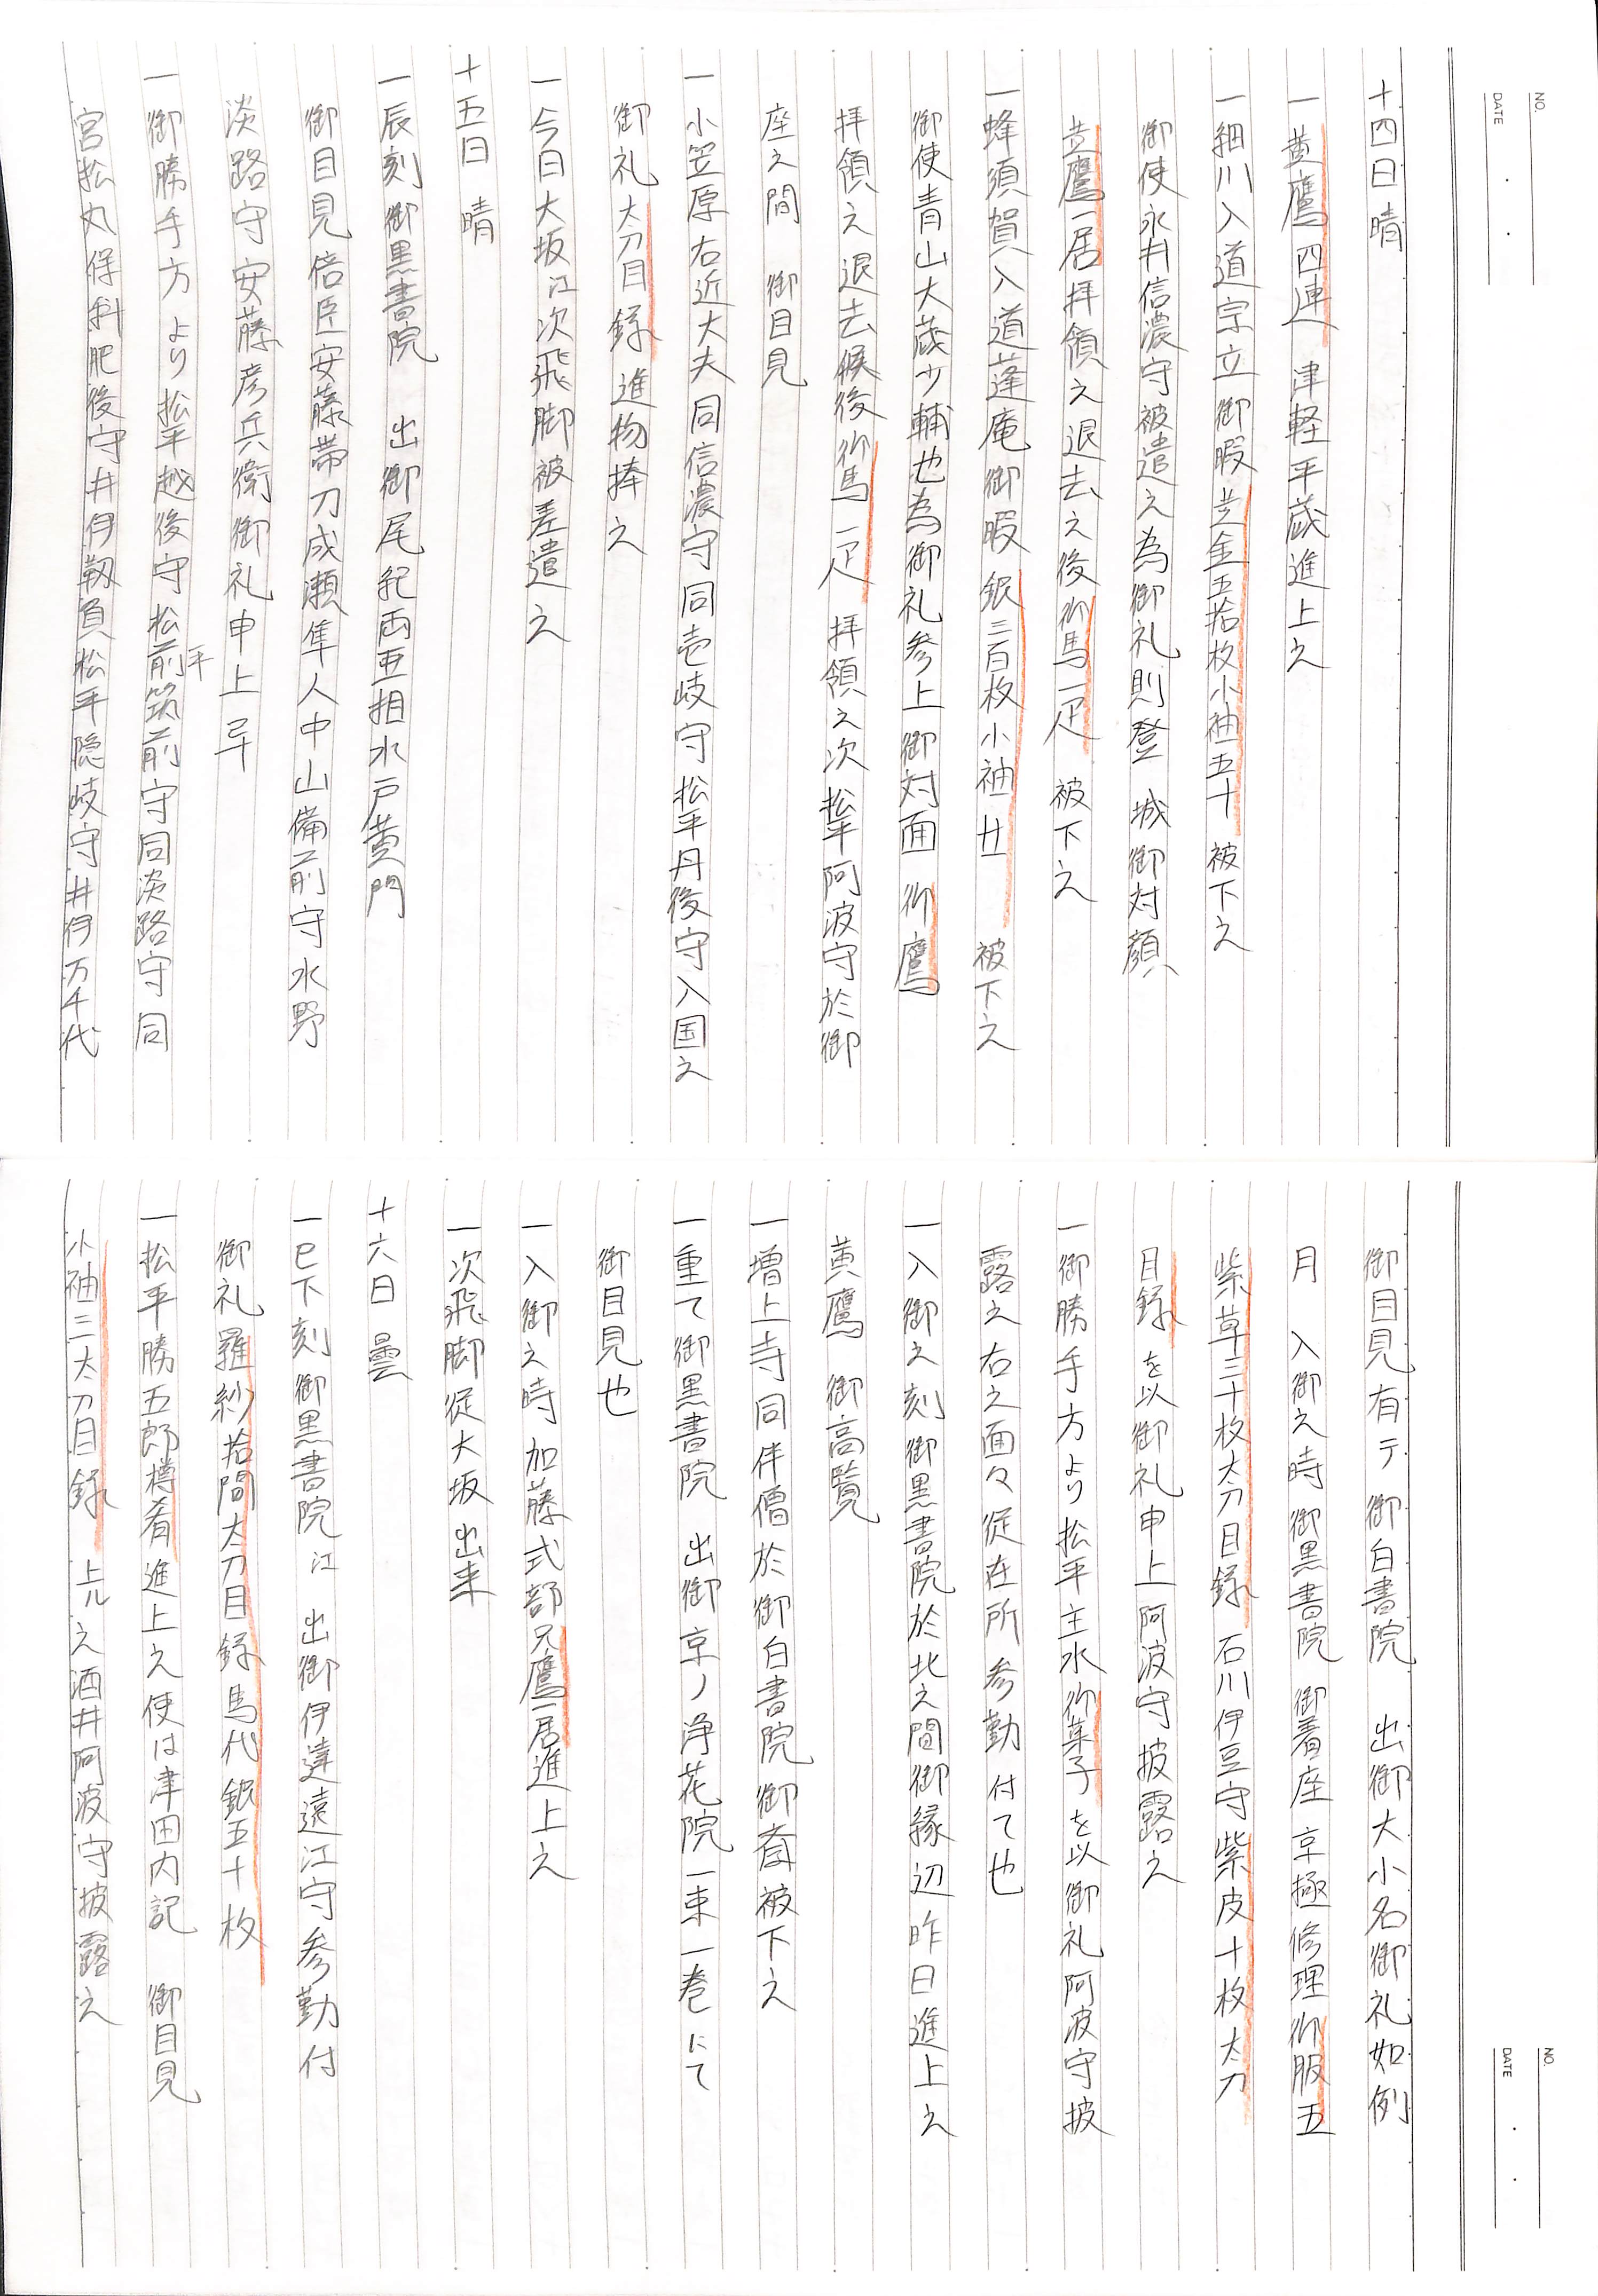 NO.
DATE
十四日晴
一黄鷹四連 津軽平蔵進上之
一細川入道宗立御暇 黄金五拾枚小袖五十 被下之
御使永井信濃守被遣之為御礼則登 城御対顔
黄鷹一居拝領之退去之後御馬一疋 被下之
一蜂須賀入道蓬庵御暇 銀三百枚小袖廿 被下之
御使青山大蔵少輔也為御礼参上御対面 御鷹
拝領之退去候後御馬一疋 拝領之次松平阿波守於御
座之間 御目見
一小笠原右近大夫同信濃守同壱岐守松平丹後守入国之
御礼太刀目録進物捧之
一今日大坂江次飛脚被差遣之
十五日 晴
一辰刻御黒書院 出御尾紀両亜相水戸黄門
御目見倍臣安藤帯刀成瀬隼人中山備前守水野
淡路守安藤彦兵衛御礼申上早
一御勝手方より松平越後守松前筑前守同淡路守同
平
宮松丸保科肥後守井伊靱負松平隠岐守井伊万千代
NO.
DATE
御目見有テ 御白書院 出御大小名御礼如例
月 入御之時御黒書院御着座 京極修理御服五
紫草三十枚太刀目録 石川伊豆守 紫皮十枚太刀
目録を以御礼申上阿波守披露之
一御勝手方より松平主水御菓子を以御礼阿波守披
露之右之面々従在所参勤付て也
一入御之刻御黒書院於北之間御縁辺昨日進上之
黄鷹 御高覧
一増上寺同伴僧於御白書院御斎被下之
一重て御黒書院 出御京ノ浄花院一束一巻にて
御目見也
一入御之時加藤式部兄鷹一居進上之
一次飛脚従大坂出来
十六日 曇
一巳下刻御黒書院江 出御伊達遠江守参勤付
御礼羅紗拾間太刀目録馬代銀五十枚
一松平勝五郎樽肴進上之使は津田内記 御目見
小袖三太刀目録 上ル之酒井阿波守披露之